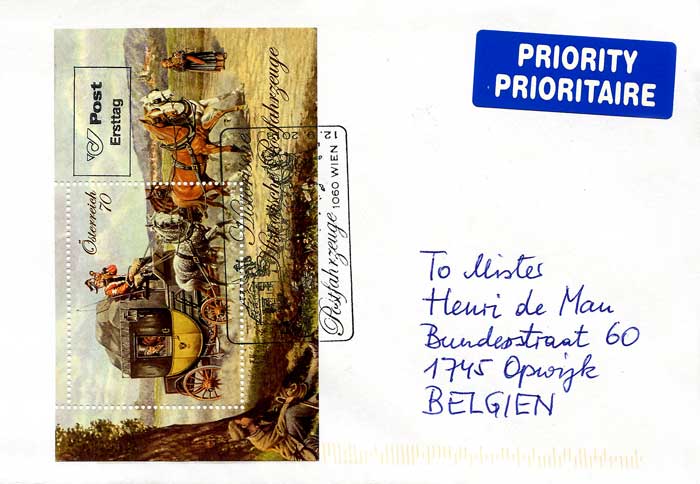 PRIORITY
PRIORITAIRE
Post
Ersttag
Österreich
70
Historische Postfahrzeuge
Postfahrzeuge
1060 WIEN
To Mister
Henri de Man
Bunderstraat 60
1745 Opwijk
BELGIEN